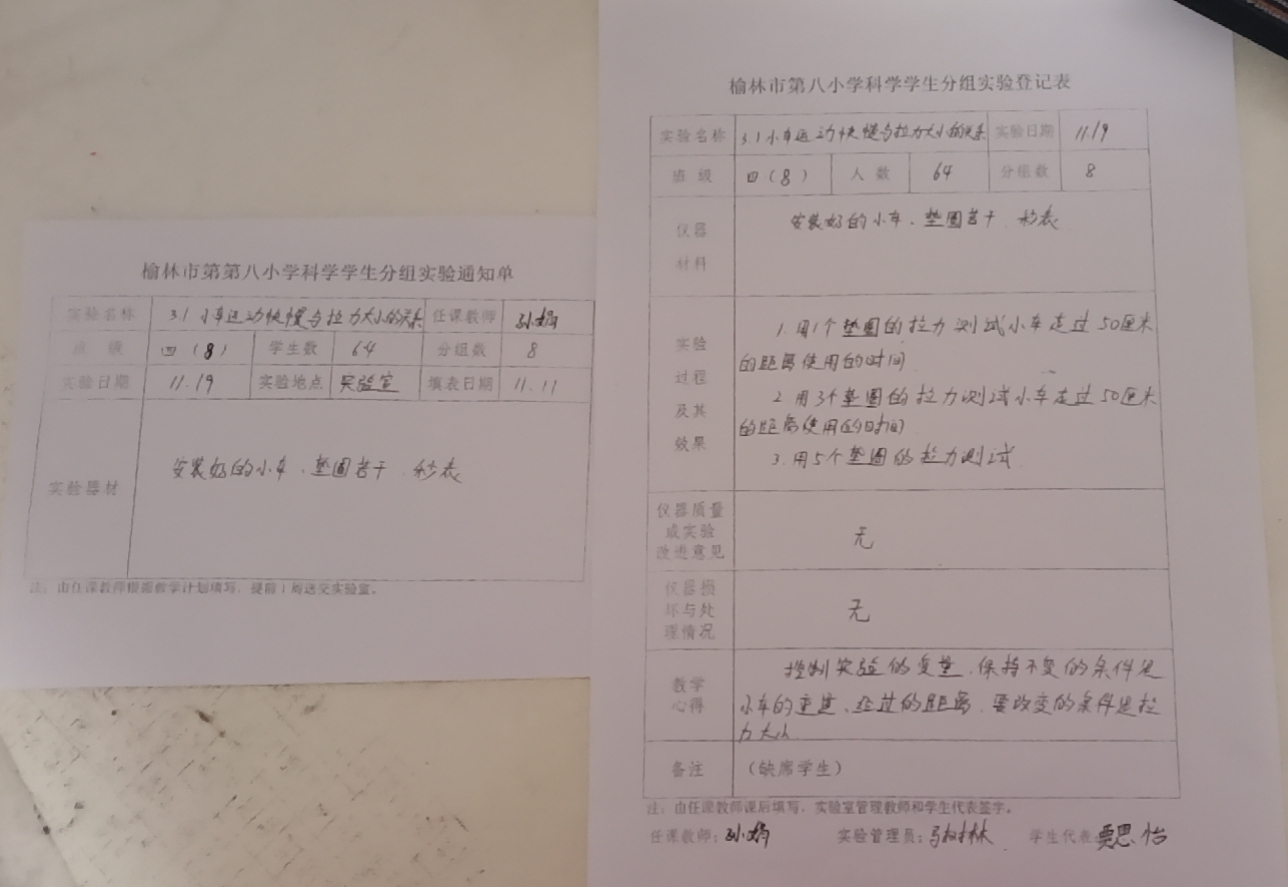 榆林市第第八小学科学学生分组实验通知单
实验名称 3.1 小车运动快慢与拉力大小的关系 任课教师 孙娟
班 级 四（8） 学生数 64 分组数 8
实验日期 11.19 实验地点 实验室 填表日期 11.11
实验器材 安装好的小车、垫圈若干 秒表
注：由任课教师根据教学计划填写，提前1周送交实验室。
榆林市第八小学科学学生分组实验登记表
实验名称 3.1 小车运动快慢与拉力大小的关系 实验日期 11.19
班 级 四（8） 人 数 64 分组数 8
仪器
材料
安装好的小车、垫圈若干 秒表
实验
过程
及其
效果
1. 用1个垫圈的拉力测试小车走过50厘米
的距离使用的时间
2 用3个垫圈的拉力测试小车走过50厘米
的距离使用的时间
3. 用5个垫圈的拉力测试
仪器质量
或实验
改进意见
无
仪器损
坏与处
理情况
无
教学
心得
控制实验的变量、保持不变的条件是
小车的重量、经过的距离、要改变的条件是拉
力大小
备注 （缺席学生）
注：由任课教师课后填写，实验室管理教师和学生代表签字。
任课教师：孙娟 实验管理员：马树林 学生代表：贾思怡